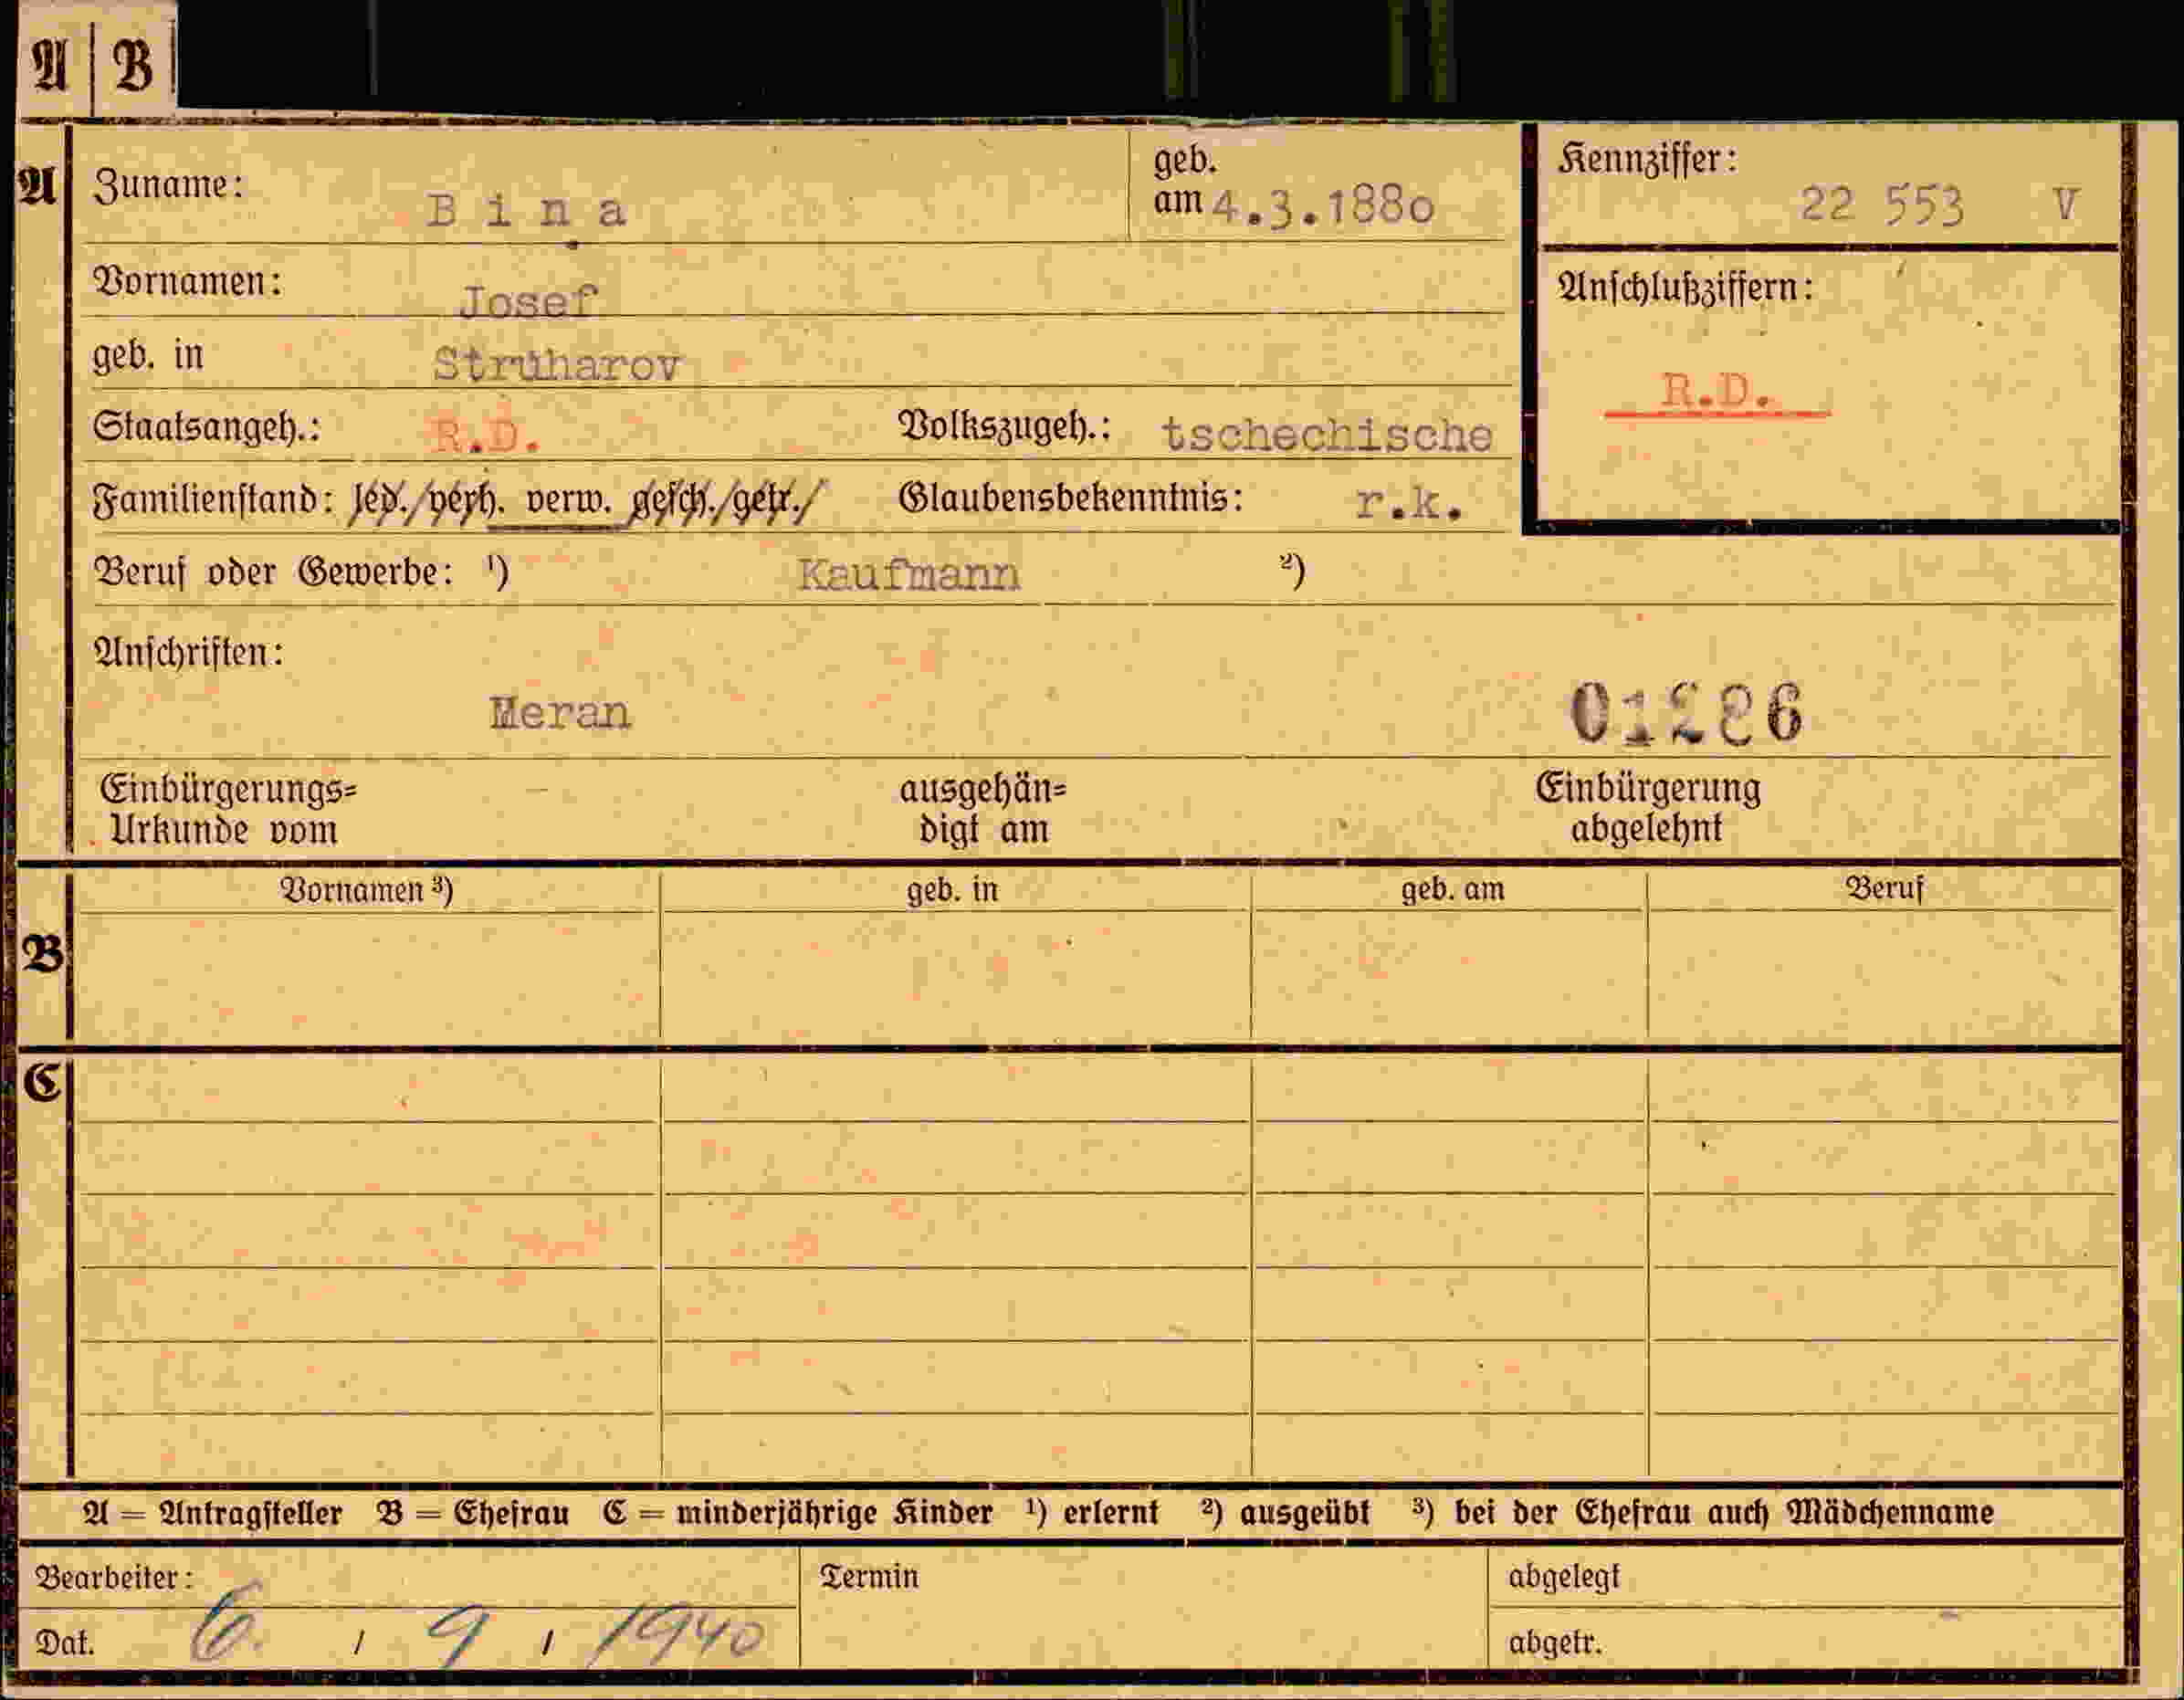 A B
A Zuname: Bina geb. am 4.3.1880
Kennziffer: 22 553 V
Vornamen: Josef
Anschlußziffern:
geb. in Struharov
R.D.
Staatsangeh.: R.D. Volkszugeh.: tschechische
Familienstand: led./verh. verw. gesch./getr./ Glaubensbekenntnis: r.k.
Beruf oder Gewerbe: ¹) Kaufmann ²)
Anschriften:
Meran
Einbürgerungs= ausgehän= Einbürgerung
Urkunde vom digt am abgelehnt
Vornamen ³) geb. in geb. am Beruf
B
C
A = Antragsteller B = Ehefrau C = minderjährige Kinder ¹) erlernt ²) ausgeübt ³) bei der Ehefrau auch Mädchenname
Bearbeiter: Termin abgelegt
Dat. 6. / 9 / 1940 abgetr.